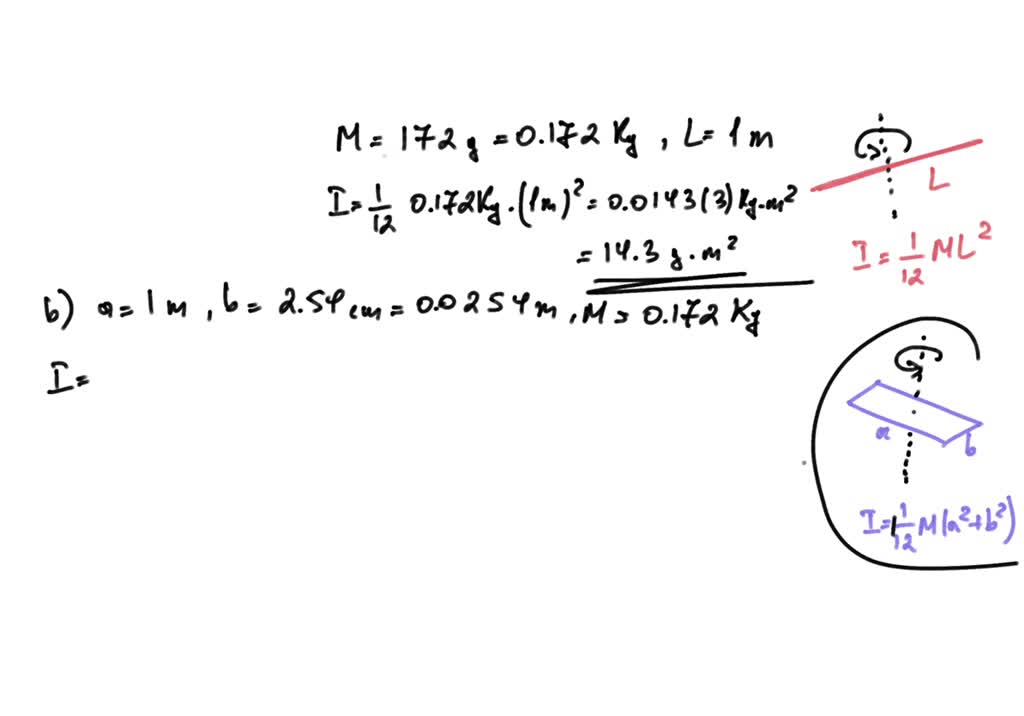 M = 172 g = 0.172 Kg , L = 1 m
I = 1/12 0.172 Kg · (1 m)² = 0.0143(3) Kg·m²
= 14.3 g·m²
L
I = 1/12 ML²
b) a = 1 m , b = 2.54 cm = 0.0254 m , M = 0.172 Kg
I =
a
b
I = 1/12 M(a²+b²)